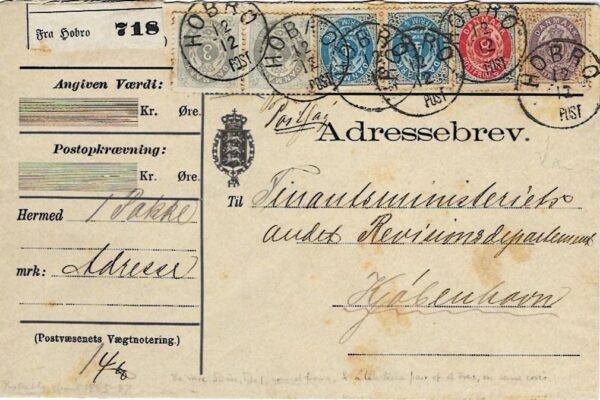 Fra Hobro 718
HOBRO 12 12 POST
HOBRO 12 12 POST
HOBRO 12 12 POST
HOBRO 12 12 POST
DANMARK
Angiven Værdi:
Kr. Øre.
Postopkrævning:
Kr. Øre.
Hermed 1 Pakke
mrk: Adresse
(Postvæsenets Vægtnotering.)
Adressebrev.
Til Finantsministeriets
andet Revisionsdepartement
Kjøbenhavn